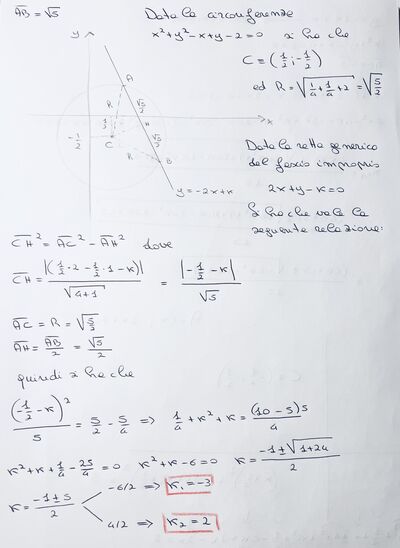 AB = √5
Data la circonferenza
x² + y² - x + y - 2 = 0 si ha che
C ≡ (1/2 ; -1/2)
ed R = √(1/4 + 1/4 + 2) = √(5/2)
y
A
R
√5/2
1/2
H
x
-1/2
C
√5/2
R
B
y = -2x + k
Data la retta generica
del fascio improprio
2x + y - k = 0
Si ha che vale la
seguente relazione:
CH² = AC² - AH² dove
CH = |(1/2 · 2 - 1/2 · 1 - k)| / √(4+1) = |-1/2 - k| / √5
AC = R = √(5/2)
AH = AB/2 = √5/2
quindi si ha che
(-1/2 - k)² / 5 = 5/2 - 5/4 => 1/4 + k² + k = (10 - 5)5 / 4
k² + k + 1/4 - 25/4 = 0 k² + k - 6 = 0 k = (-1 ± √(1+24)) / 2
k = (-1 ± 5) / 2
-6/2 => k₁ = -3
4/2 => k₂ = 2